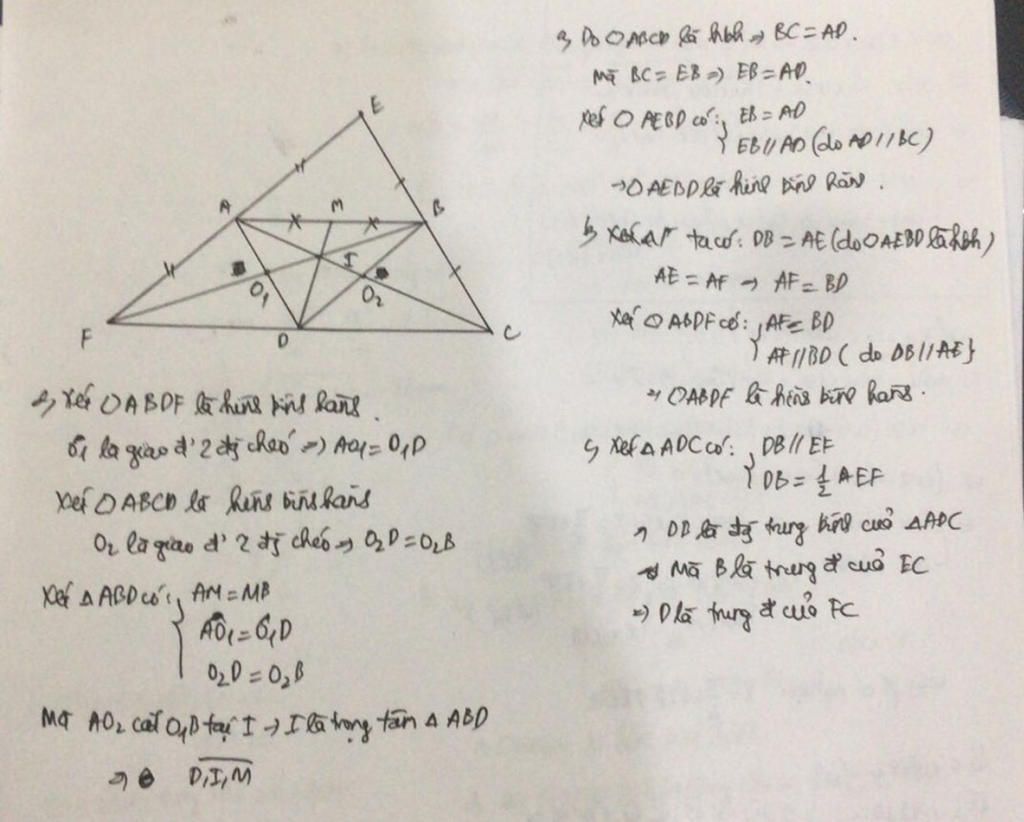 E
A
M
B
I
O₁
O₂
F
D
C
a, Do ◊ABCD là hbh → BC = AD.
Mà BC = EB => EB = AD.
Xét ◊ AEBD có: { EB = AD
EB // AD (do AD // BC)
→ ◊ AEBD là hình bình hành.
b, Xét ta có: DB = AE (do ◊AEBD là hbh)
AE = AF → AF = BD
Xét ◊ ABDF có: { AF = BD
AF // BD ( do DB // AE }
→ ◊ABDF là hình bình hành.
c, Xét Δ ADC có: { DB // EF
DB = 1/2 AEF
→ DB là đg trung bình cuả ΔADC
Mà B là trung đ' cuả EC
=> D là trung đ' cuả FC
Xét ◊ ABDF là hình bình hành.
O₁ là giao đ' 2 đg chéo => AO₁ = O₁D
Xét ◊ ABCD là hình bình hành
O₂ là giao đ' 2 đg chéo => O₂D = O₂B
Xét Δ ABD có: { AM = MB
AO₁ = O₁D
O₂D = O₂B
Mà AO₂ cắt O₁B tại I → I là trọng tâm Δ ABD
=> D, I, M